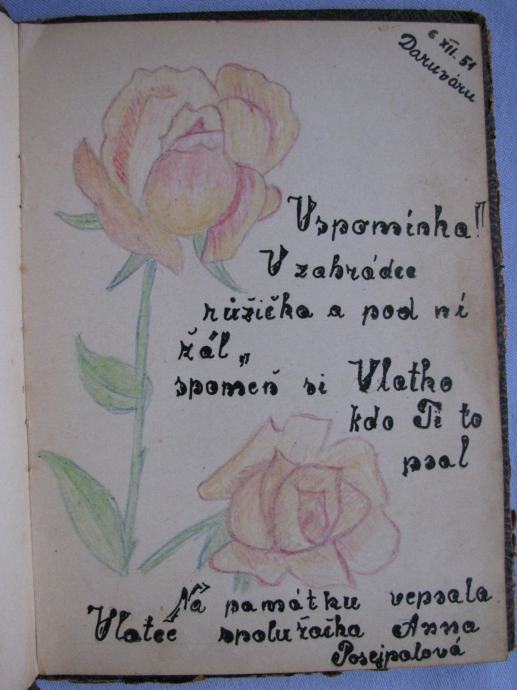 6 XII. 51
Daruváru
Vspomínka!!
V zahrádce
růžička a pod ní
žál„
spomeň si Vlatko
kdo Ti to
psal
Na památku vepsala
Vlatce spolužačka Anna
Posejpalová